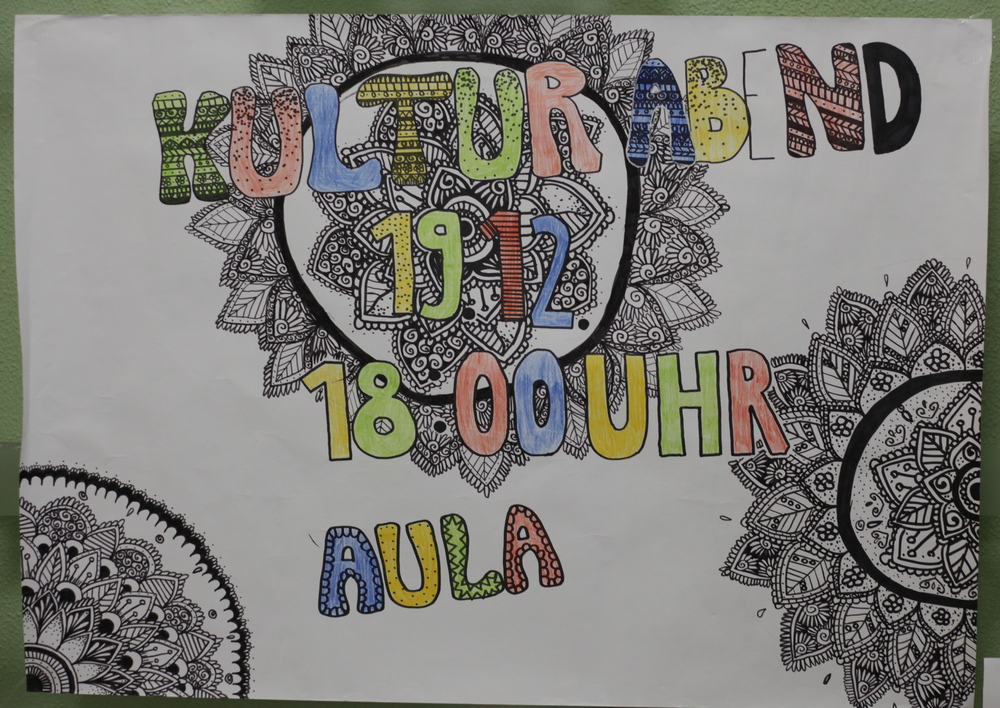 KULTURABEND
19.12.
18.00 UHR
AULA